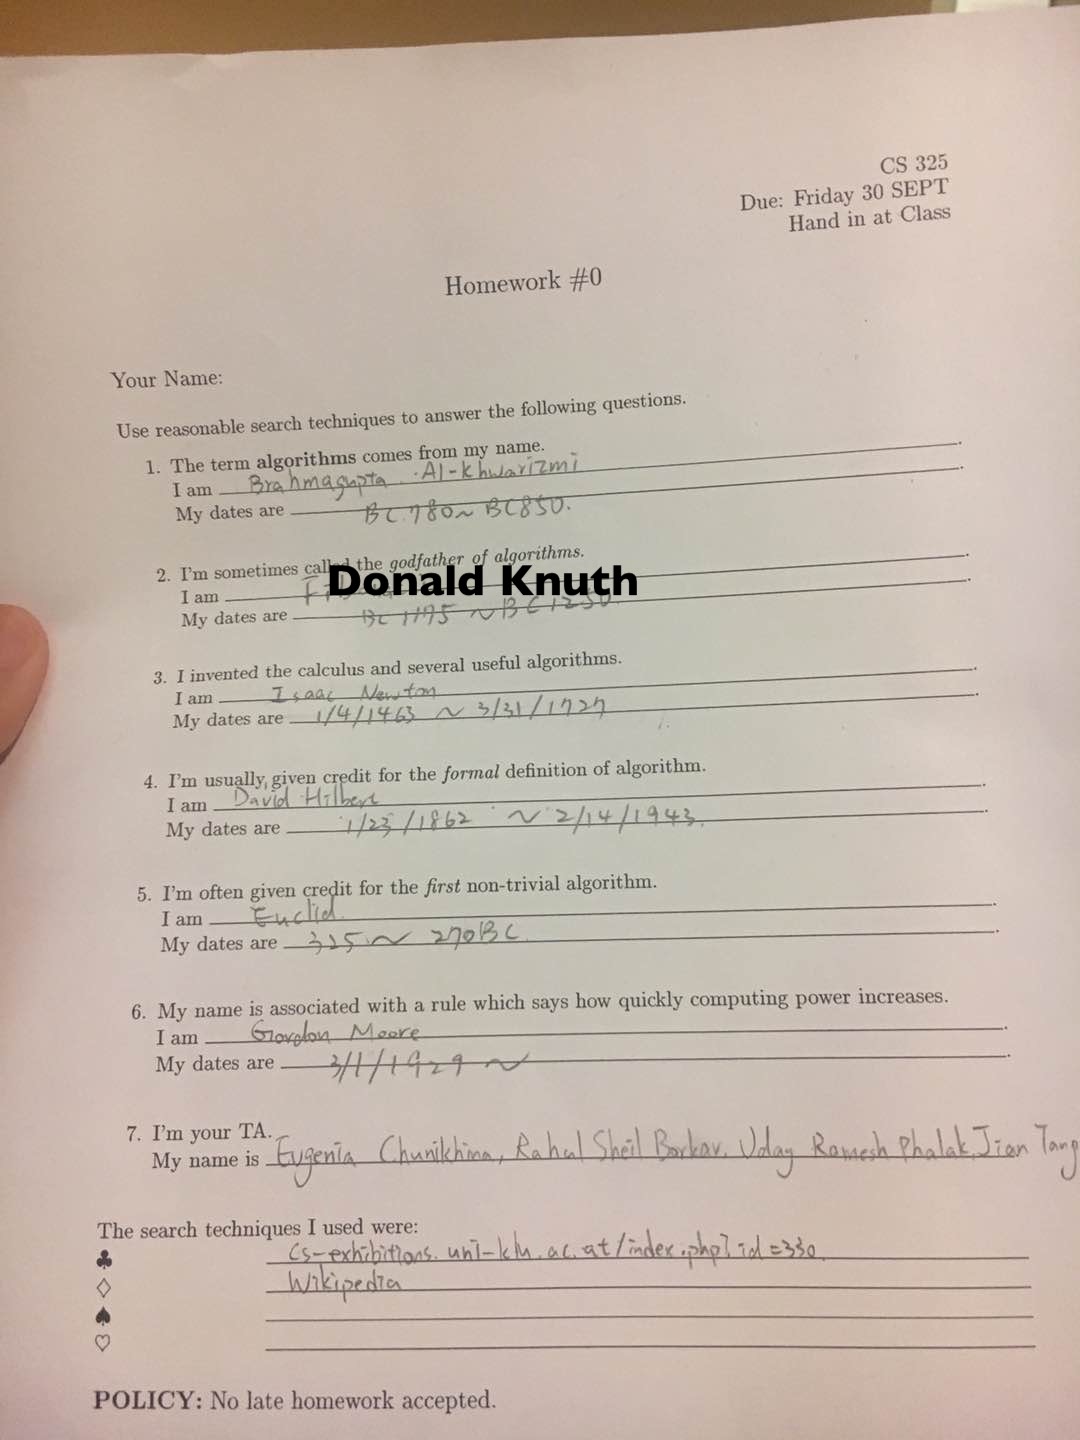 CS 325
Due: Friday 30 SEPT
Hand in at Class
Homework #0
Your Name:
Use reasonable search techniques to answer the following questions.
1. The term algorithms comes from my name.
I am Brahmagupta . Al-khwarizmi .
My dates are BC.780~ BC850. .
2. I'm sometimes called the godfather of algorithms.
I am Donald Knuth .
My dates are BC 1175 ~ BC 1250 .
3. I invented the calculus and several useful algorithms.
I am Isaac Newton .
My dates are 1/4/1463 ~ 3/31/1727 .
4. I'm usually given credit for the formal definition of algorithm.
I am David Hilbert .
My dates are 1/23/1862 ~ 2/14/1943. .
5. I'm often given credit for the first non-trivial algorithm.
I am Euclid. .
My dates are 325 ~ 270BC .
6. My name is associated with a rule which says how quickly computing power increases.
I am Gordon Moore .
My dates are 3/1/1929 ~ .
7. I'm your TA.
My name is Eugenia Chunikhina, Rahul Sheil Borkar, Uday Ramesh Phalak, Jian Tang
The search techniques I used were:
♣ cs-exhibitions.uni-klu.ac.at/index.php?id=330
♢ Wikipedia
♠
♡
POLICY: No late homework accepted.